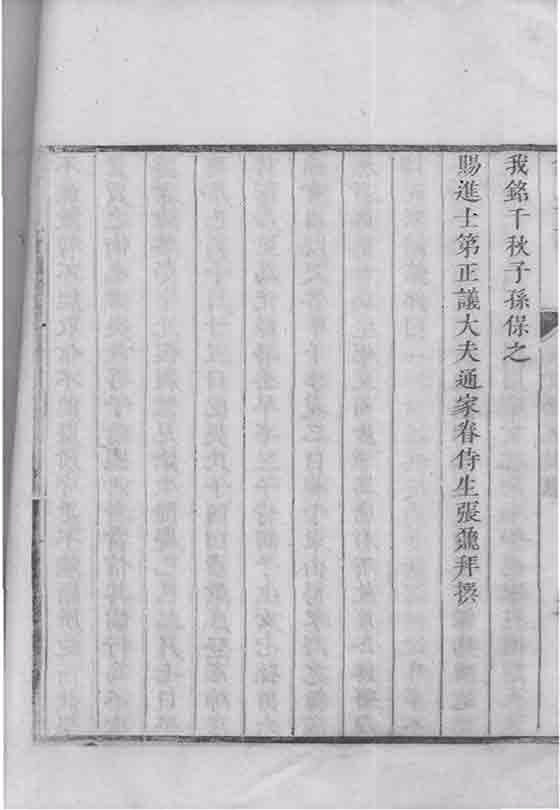 我銘千秋子孫保之
賜進士第正議大夫通家眷侍生張鼐拜撰